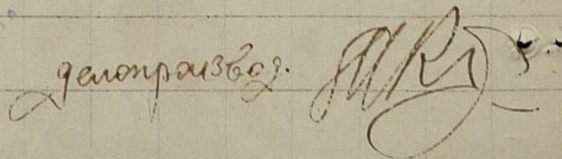 делопроизвод.